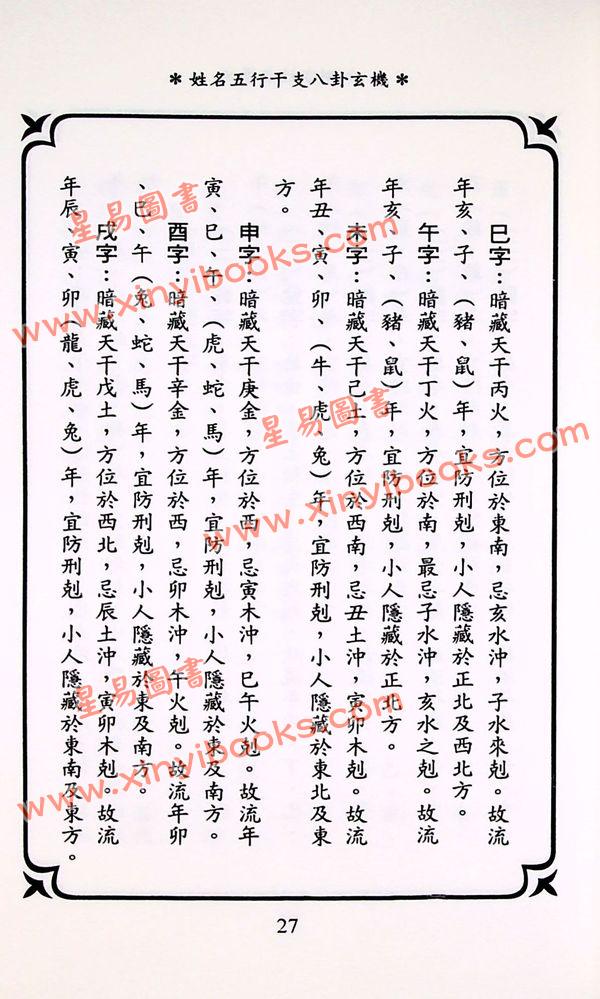 ＊姓名五行干支八卦玄機＊
巳字：暗藏天干丙火，方位於東南，忌亥水沖，子水來剋。故流
年亥、子、（豬、鼠）年，宜防刑剋，小人隱藏於正北及西北方。
午字：暗藏天干丁火，方位於南，最忌子水沖，亥水之剋。故流
年亥、子、（豬、鼠）年，宜防刑剋，小人隱藏於正北方。
未字：暗藏天干己土，方位於西南，忌丑土沖，寅卯木剋。故流
年丑、寅、卯、（牛、虎、兔）年，宜防刑剋，小人隱藏於東北及東
方。
申字：暗藏天干庚金，方位於西，忌寅木沖，巳午火剋。故流年
寅、巳、午、（虎、蛇、馬）年，宜防刑剋，小人隱藏於東及南方。
酉字：暗藏天干辛金，方位於西，忌卯木沖，午火剋。故流年卯
、巳、午（兔、蛇、馬）年，宜防刑剋，小人隱藏於東及南方。
戌字：暗藏天干戊土，方位於西北，忌辰土沖，寅卯木剋。故流
年辰、寅、卯（龍、虎、兔）年，宜防刑剋，小人隱藏於東南及東方。
27
星易圖書
www.xinyibooks.com
星易圖書
www.xinyibooks.com
星易圖書
www.xinyibooks.com